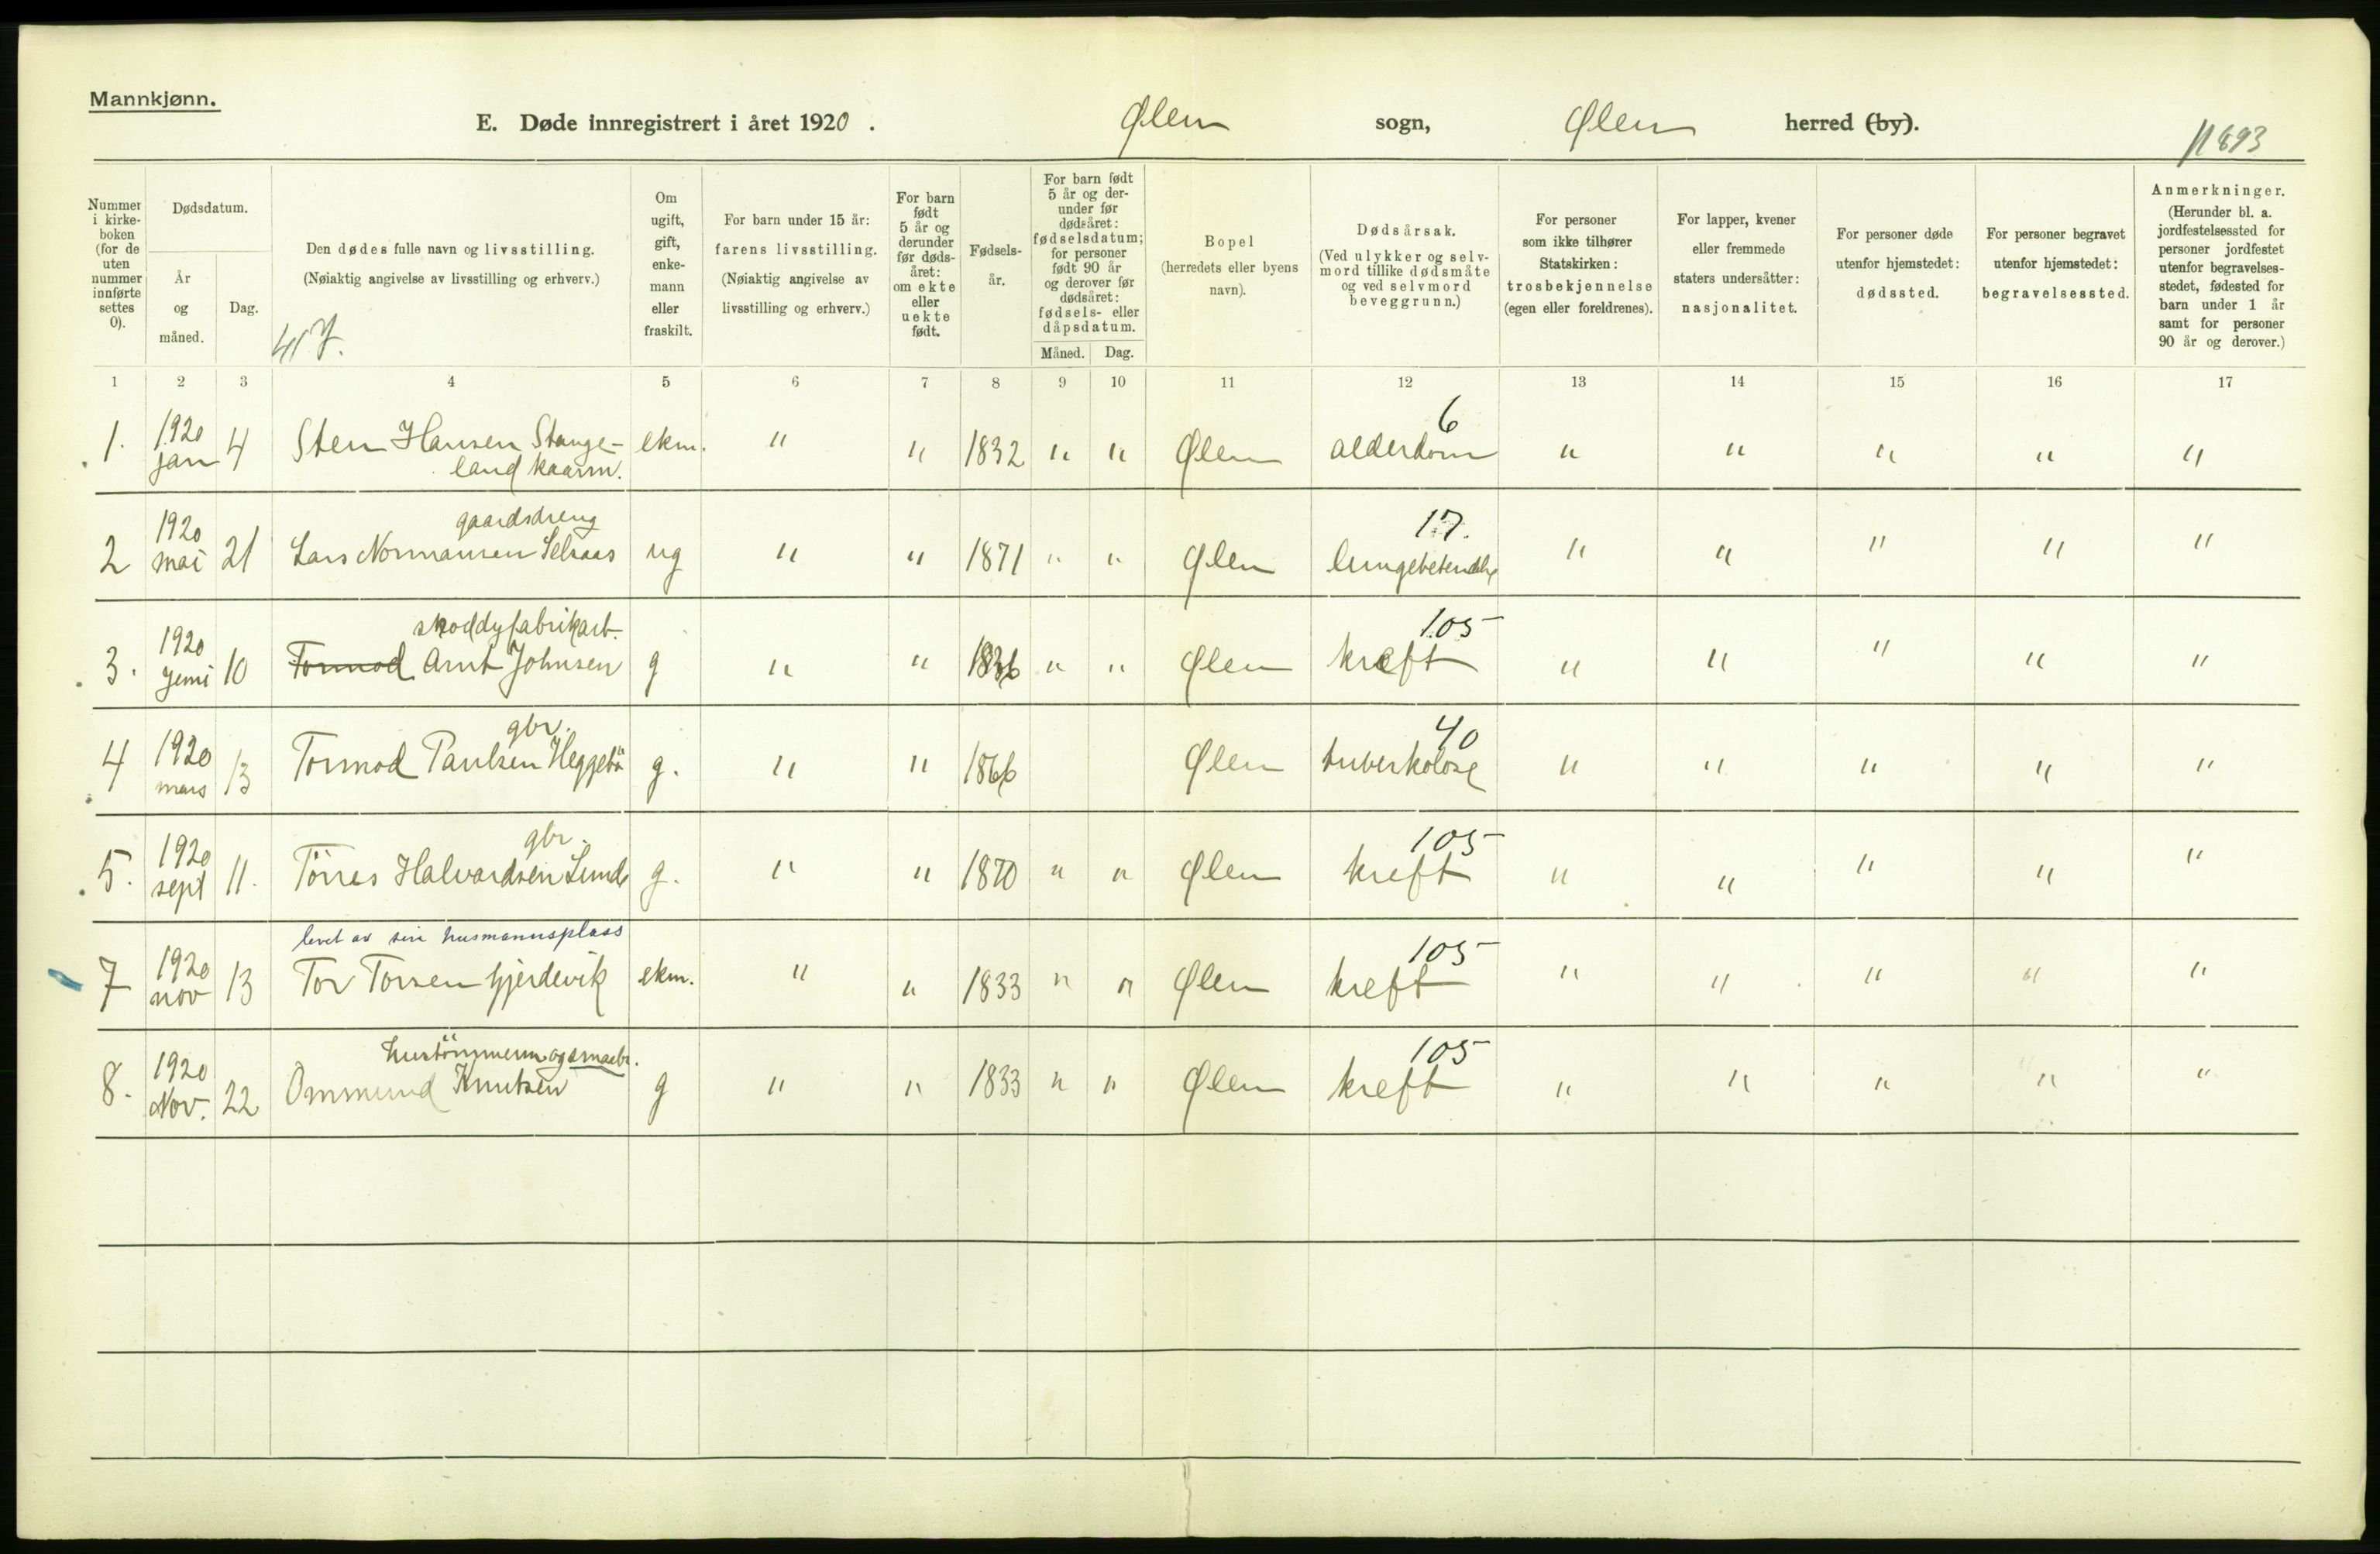 Mannkjønn.
E. Døde innregistrert i året 1920. Ølen sogn, Ølen herred (by).
11893
Nummer i kirke- boken (for de uten nummer innførte settes 0).
Dødsdatum.
År og måned.
Dag.
Den dødes fulle navn og livsstilling.
(Nøiaktig angivelse av livsstilling og erhverv.)
Om ugift, gift, enke- mann eller fraskilt.
For barn under 15 år: farens livsstilling. (Nøiaktig angivelse av livsstilling og erhverv.)
For barn født 5 år og derunder før døds- året: om ekte eller uekte født.
Fødsels- år.
For barn født 5 år og der- under før dødsåret: fødselsdatum; for personer født 90 år og derover før dødsåret: fødsels- eller dåpsdatum.
Måned. Dag.
Bopel (herredets eller byens navn).
Dødsårsak. (Ved ulykker og selv- mord tillike dødsmåte og ved selvmord beveggrunn.)
For personer som ikke tilhører Statskirken: trosbekjennelse (egen eller foreldrenes).
For lapper, kvener eller fremmede staters undersåtter: nasjonalitet.
For personer døde utenfor hjemstedet: dødssted.
For personer begravet utenfor hjemstedet: begravelsessted.
Anmerkninger. (Herunder bl. a. jordfestelsessted for personer jordfestet utenfor begravelses- stedet, fødested for barn under 1 år samt for personer 90 år og derover.)
1 2 3 4 5 6 7 8 9 10 11 12 13 14 15 16 17
6
1. 1920 jan 4 Sten Hansen Stange- ekm. " " 1832 " " Ølen alderdom " " " " "
land kaarm.
gaardsdreng 17.
2 1920 mai 21 Lars Normansen Selsaas ug " " 1871 " " Ølen lungebetendelse " " " " "
skoddyfabrikarb. 105
3. 1920 juni 10 Tormod Arnt Johnsen g " " 1836 " " Ølen kreft " " " " "
gbr. 40
4 1920 mars 13 Tormod Paulsen Heggebö g. " " 1866 Ølen tuberkolose " " " " "
gbr. 105
5. 1920 sept 11. Törres Halvardsen Lunde g. " " 1870 " " Ølen kreft " " " " "
levet av sin husmannsplass 105
7 1920 nov 13 Tor Torsen Gjerdevik ekm. " " 1833 " " Ølen kreft " " " " "
hustömmerm og smaabr. 105
8. 1920 Nov. 22 Ommund Knutsen g " " 1833 " " Ølen kreft " " " " "